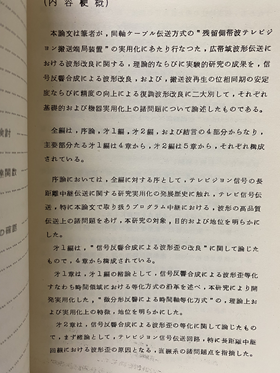 (内容梗概)
本論文は筆者が，同軸ケーブル伝送方式の"残留側帯波テレビジ
ョン搬送端局装置"の実用化にあたり行なつた，広帯域波形伝送に
おける波形改良に関する，理論的ならびに実験的研究の成果を，信
号反響合成による波形改良，および，搬送波再生の位相同期の安定
度ならびに精度の向上による復調波形改良に二大別して，それぞれ
基礎的および機器実用化上の諸問題について論述したものである。
全編は，序論，才1編，才2編，および結言の4部分からなり，
主要部分たる才1編は4章から，才2編は5章から，それぞれ構成
されている。
序論においては，全編に対する序として，テレビジヨン信号の長
距離中継伝送に関する研究実用化の発展歴史に触れ，テレビ信号伝
送，特に本論文で取り扱うプログラム中継における，波形の高品質
伝送上の諸問題をあげ，本研究の対象，目的および地位を明らかに
した。
才1編は，"信号反響合成による波形歪の改良"に関して論じた
もので，4章から構成されている。
才1章は，才1編の緒論として，信号反響合成による波形歪等化
すなわち時間領域における等化方式の沿革を述べ，本研究により開
発実用化した，"微分形反響による時間軸等化方式"の，理論上お
よび実用化上の特徴，地位を明らかにした。
才2章は，信号反響合成による波形歪の等化に関して論じたもの
で，まず緒論として，テレビジヨン信号伝送回路，特に長距離中継
回線における波形歪の原因となる，直線系の諸問題点を指摘した。
検討
換関数
の確認